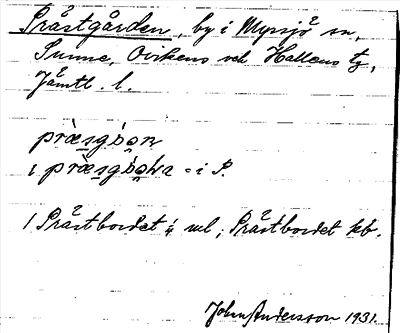 Prästgården, by i Myrsjö sn,
Sunne, Ovikens och Hallens tg,
Jämtl. l.
præ̀sgɒ́ɷn
i præ̀sgɒ́ɷɴa = i P.
1 Prästbordet ½ ml; Prästbordet kb.
John Andersson 1931.